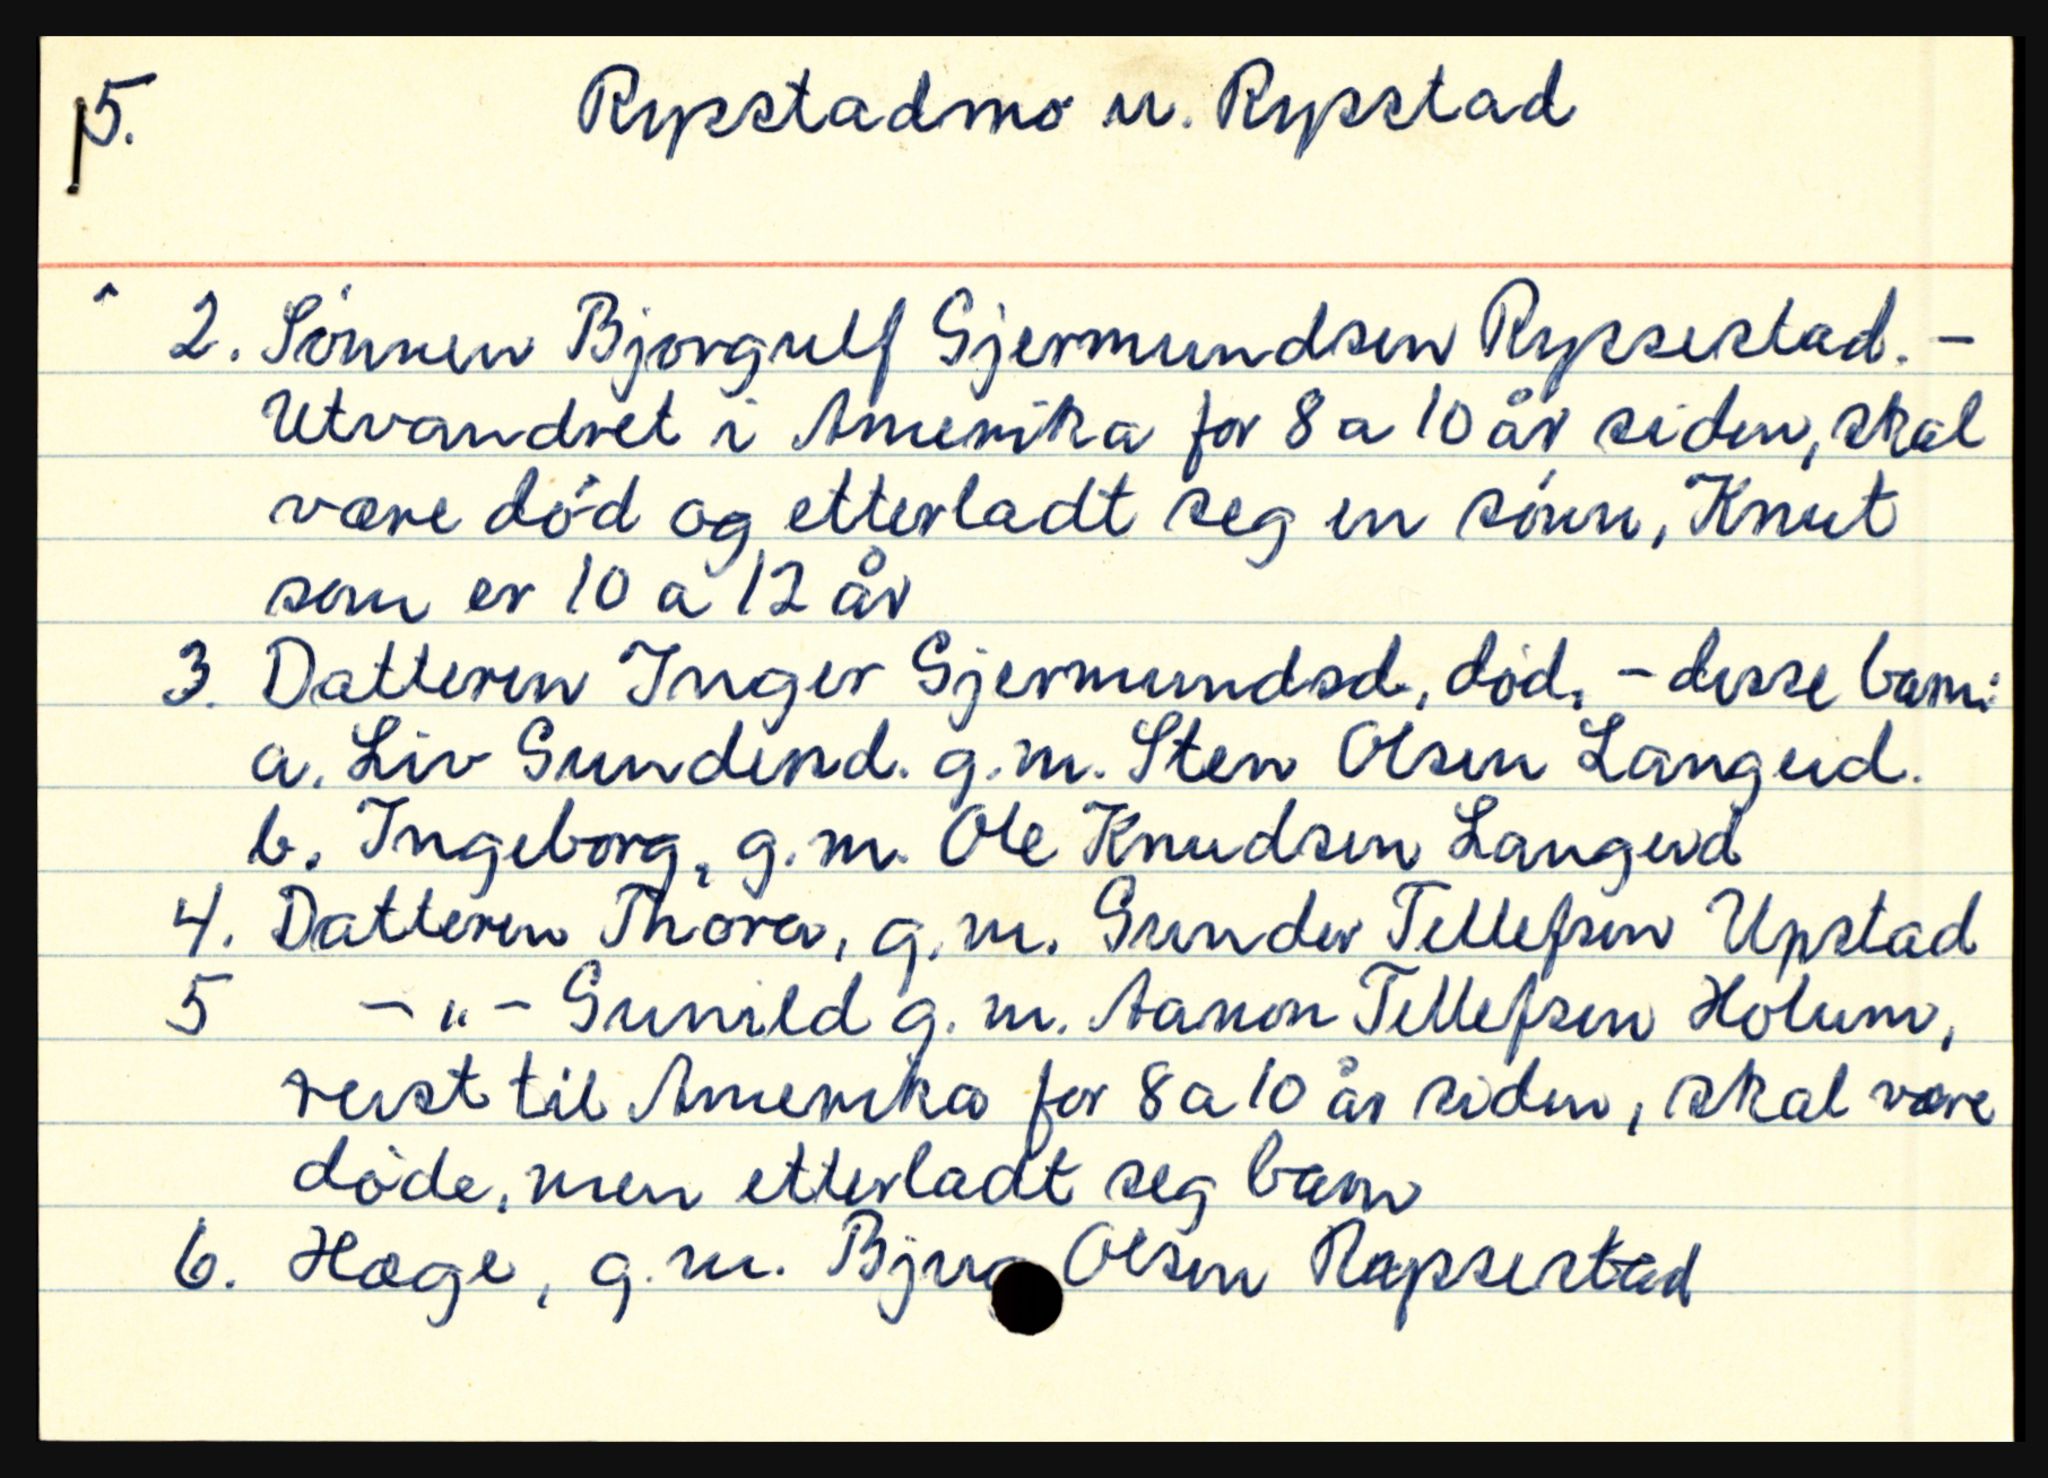 5. Rysstadmo u. Rysstad
2. Sønnen Bjorgulf Gjermundsen Ryssestad. -
Utvandret i Amerika for 8 a 10 år siden, skal
være død og etterladt seg en sønn, Knut
som er 10 a 12 år
3. Datteren Inger Gjermundsd., død, - disse barn:
a. Liv Gundersd. g.m. Sten Olsen Langeid.
b. Ingeborg, g.m. Ole Knudsen Langeid
4. Datteren Thora, g.m. Gunder Tellefsen Upstad
5 - " - Gunild g.m. Aanon Tellefsen Holum,
reist til Amerika for 8 a 10 år siden, skal være
døde, men etterladt seg barn
6. Hæge, g.m. Bjug Olsen Rapsestad